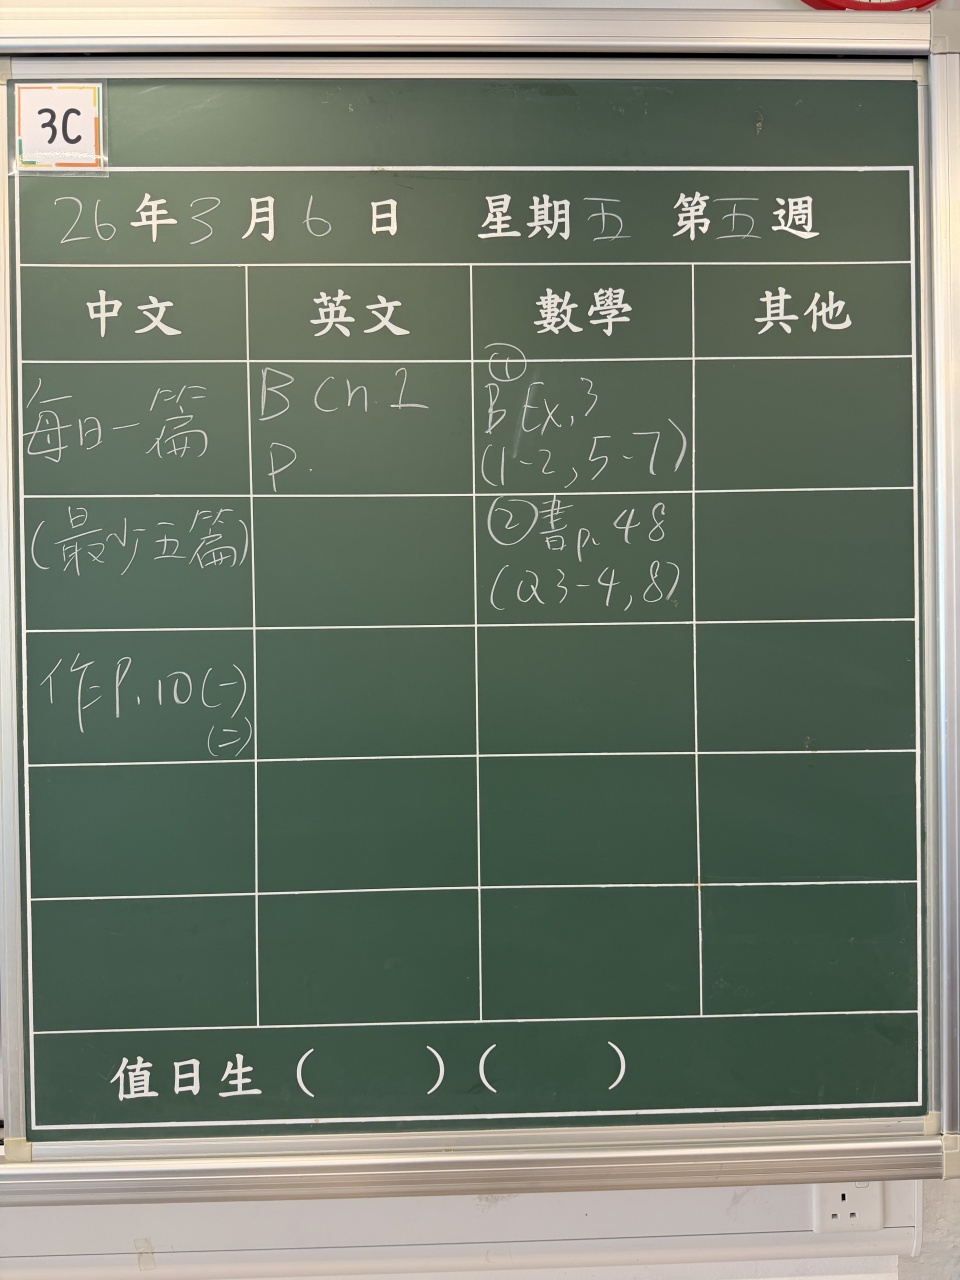 3C
26年3月6日 星期五 第五週
中文 英文 數學 其他
每日一篇
(最少五篇)
作P.10(一)
(二)
B Ch.1
P.
①
B Ex.3
(1-2, 5-7)
②書p.48
(Q3-4, 8)
值日生( )( )